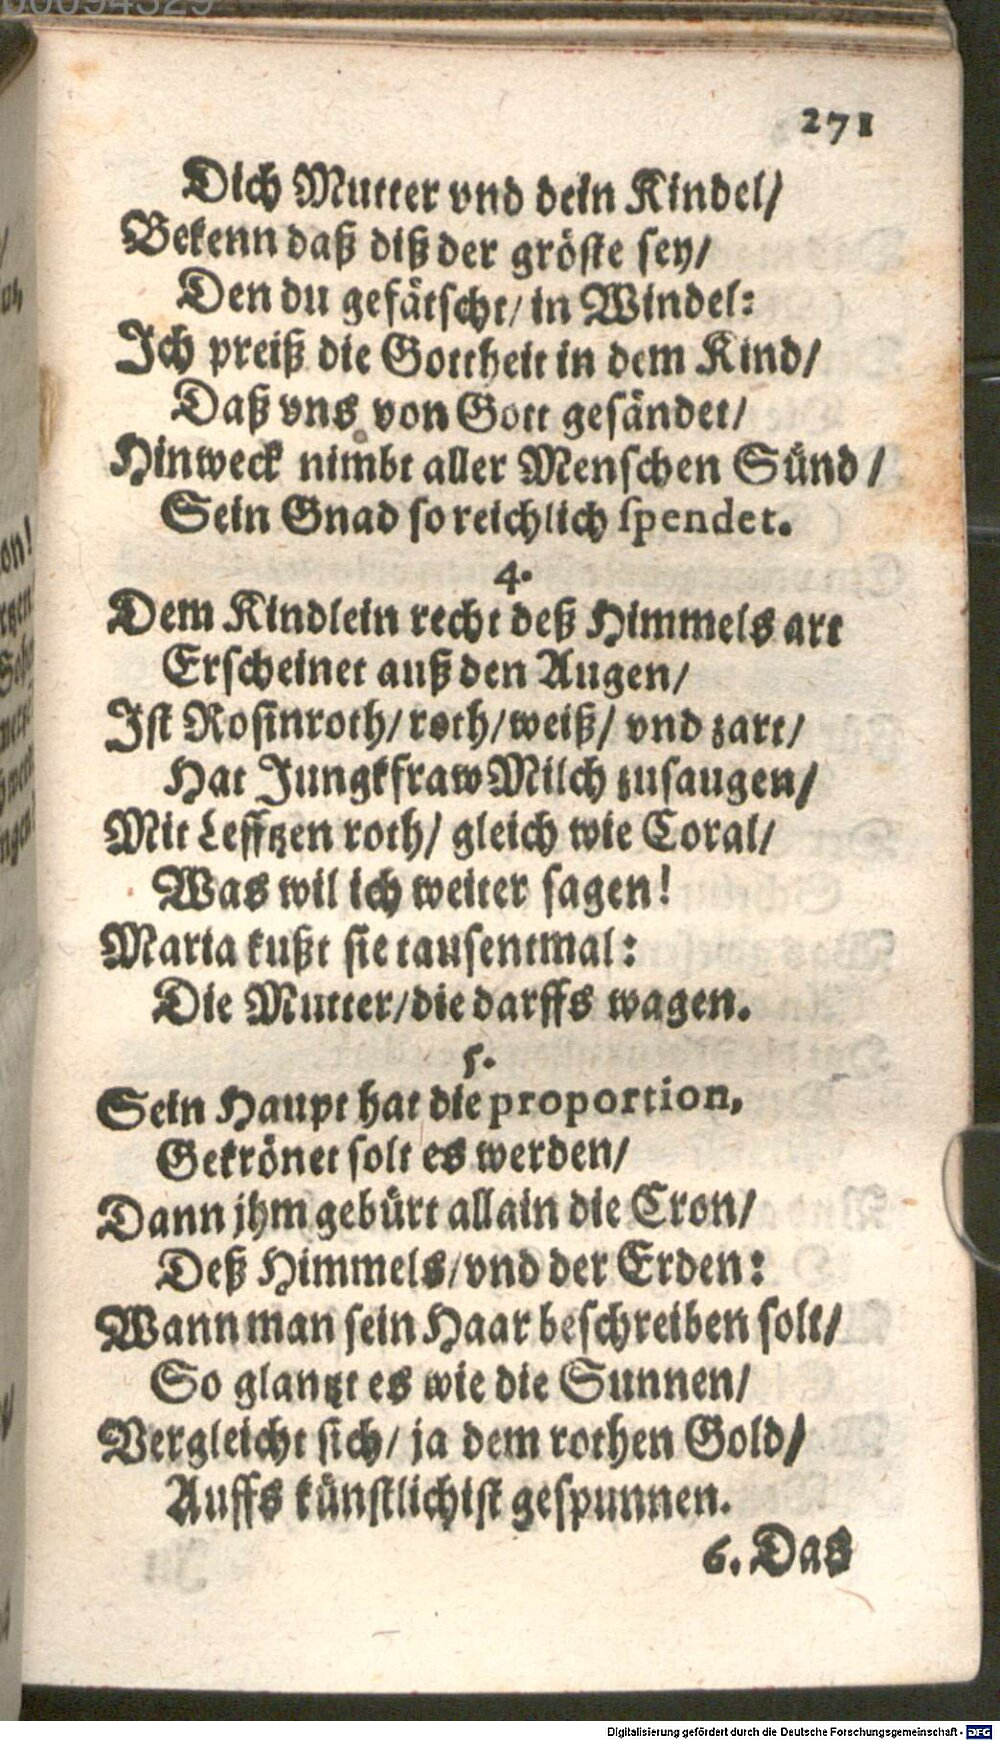 271
Dich Mutter vnd dein Kindel/
Bekenn daß diß der gröste sey/
Den du gefätscht/ in Windel:
Ich preiß die Gottheit in dem Kind/
Daß vns von Gott gesändet/
Hinweck nimbt aller Menschen Sünd/
Sein Gnad so reichlich spendet.
4.
Dem Kindlein recht deß Himmels art
Erscheinet auß den Augen/
Ist Rosinroth/ roth/ weiß/ vnd zart/
Hat Jungkfraw Milch zusaugen/
Mit Lefftzen roth/ gleich wie Coral/
Was wil ich weiter sagen!
Maria kußt sie tausentmal:
Die Mutter/ die darffs wagen.
5.
Sein Haupt hat die proportion,
Gekrönet solt es werden/
Dann jhm gebürt allain die Cron/
Deß Himmels/ vnd der Erden:
Wann man sein Haar beschreiben solt/
So glantzt es wie die Sunnen/
Vergleicht sich/ ja dem rothen Gold/
Auffs künstlichist gespunnen.
6. Das
Digitalisierung gefördert durch die Deutsche Forschungsgemeinschaft - DFG